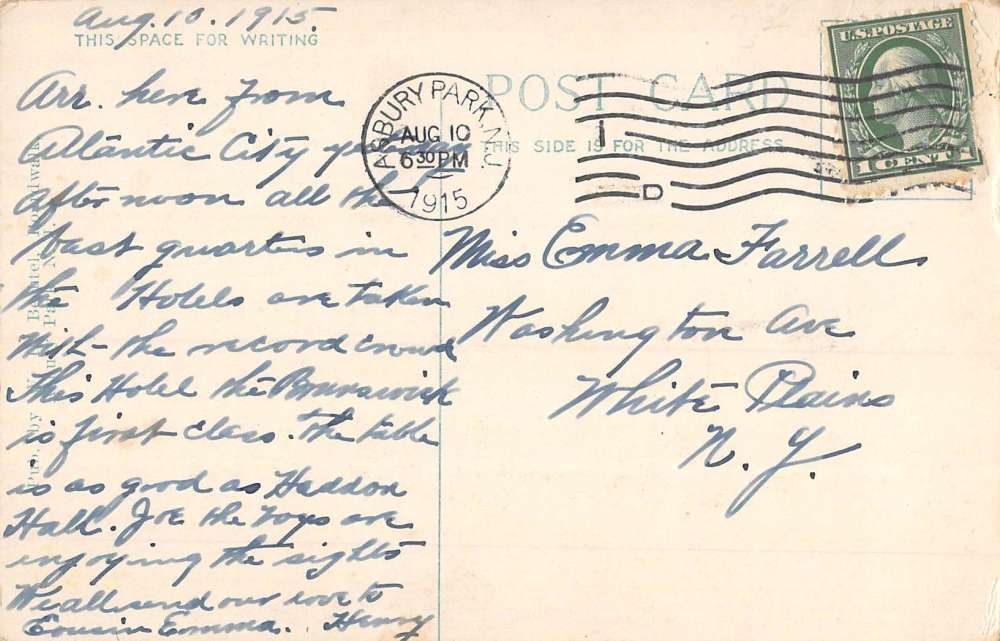 Aug. 10. 1915.
THIS SPACE FOR WRITING
Arr. here from
Atlantic City yesterday
afternoon all the
best quarters in
the Hotels are taken
With the record crowd
This Hotel the Brunswick
is first class. The table
is as good as Haddon
Hall. Joe the boys are
enjoying the sights
We all send our love to
Cousin Emma. Henry
Pub. by
ASBURY PARK, N.J.
AUG 10
6 30 PM
1915
1
D
POST CARD
THIS SIDE IS FOR THE ADDRESS
U.S. POSTAGE
1 CENT 1
Miss Emma Farrell
Washington Ave
White Plains
N. Y.